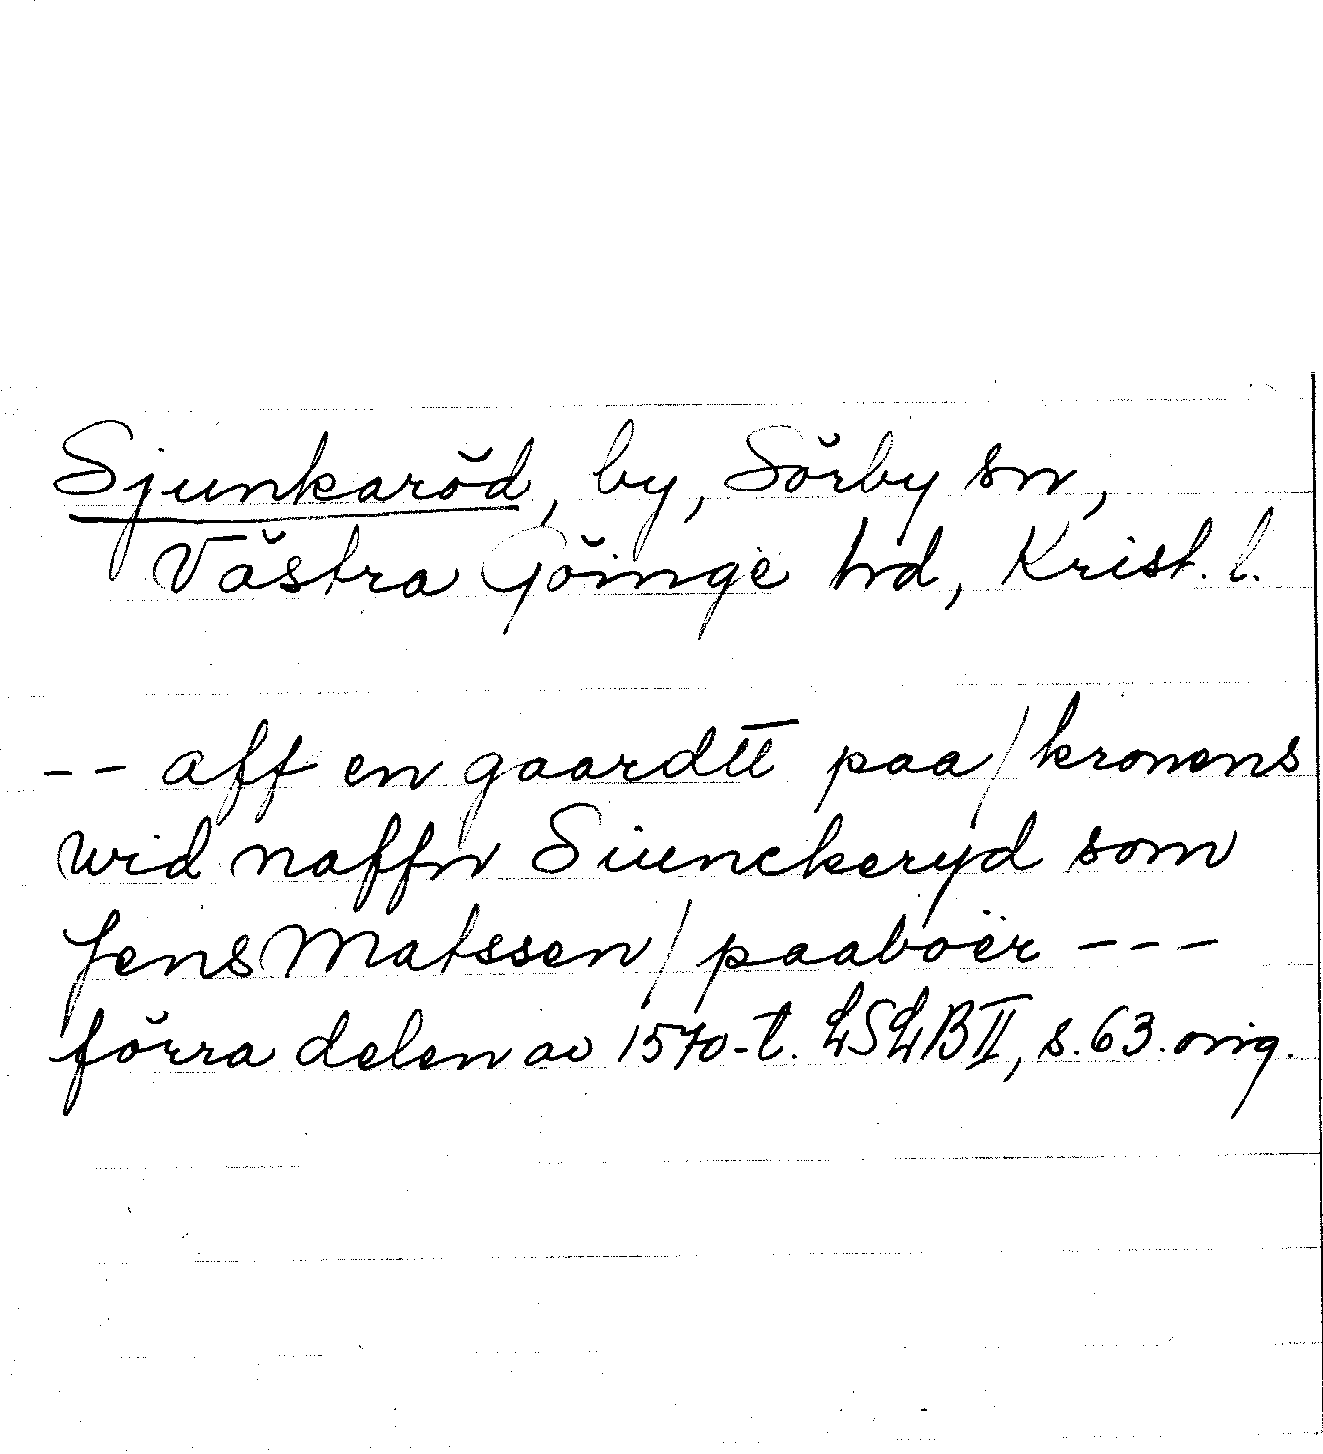 Sjunkaröd, by, Sörby sn,
Västra Göinge hd, Krist. l.
-- aff en gaardtt paa / kronens
wid naffn Siunckeryd som
Jens Matssen / paaboër ---
förra delen av 1570-t. LSLB II, s. 63. orig.